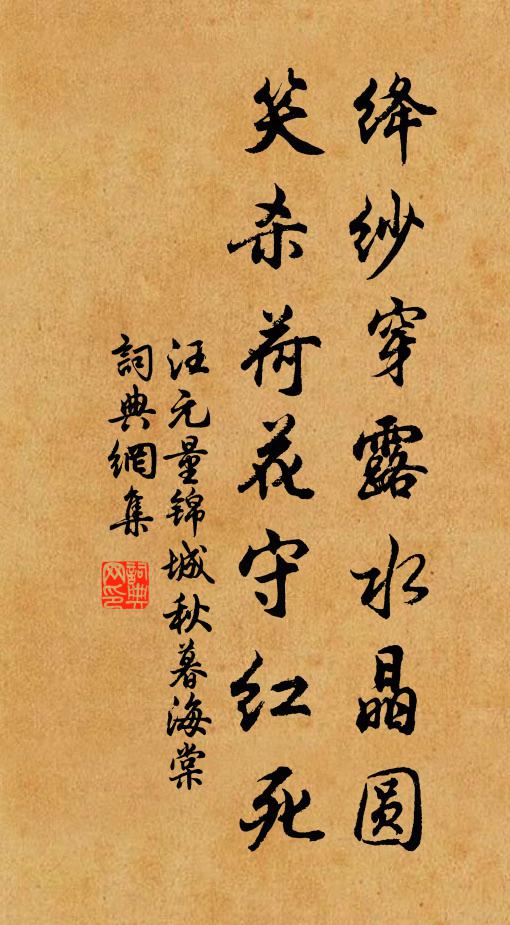 绛纱穿露水晶圆
笑杀荷花守红死
汪元量锦城秋暮海棠
詞典網集
詞典网印